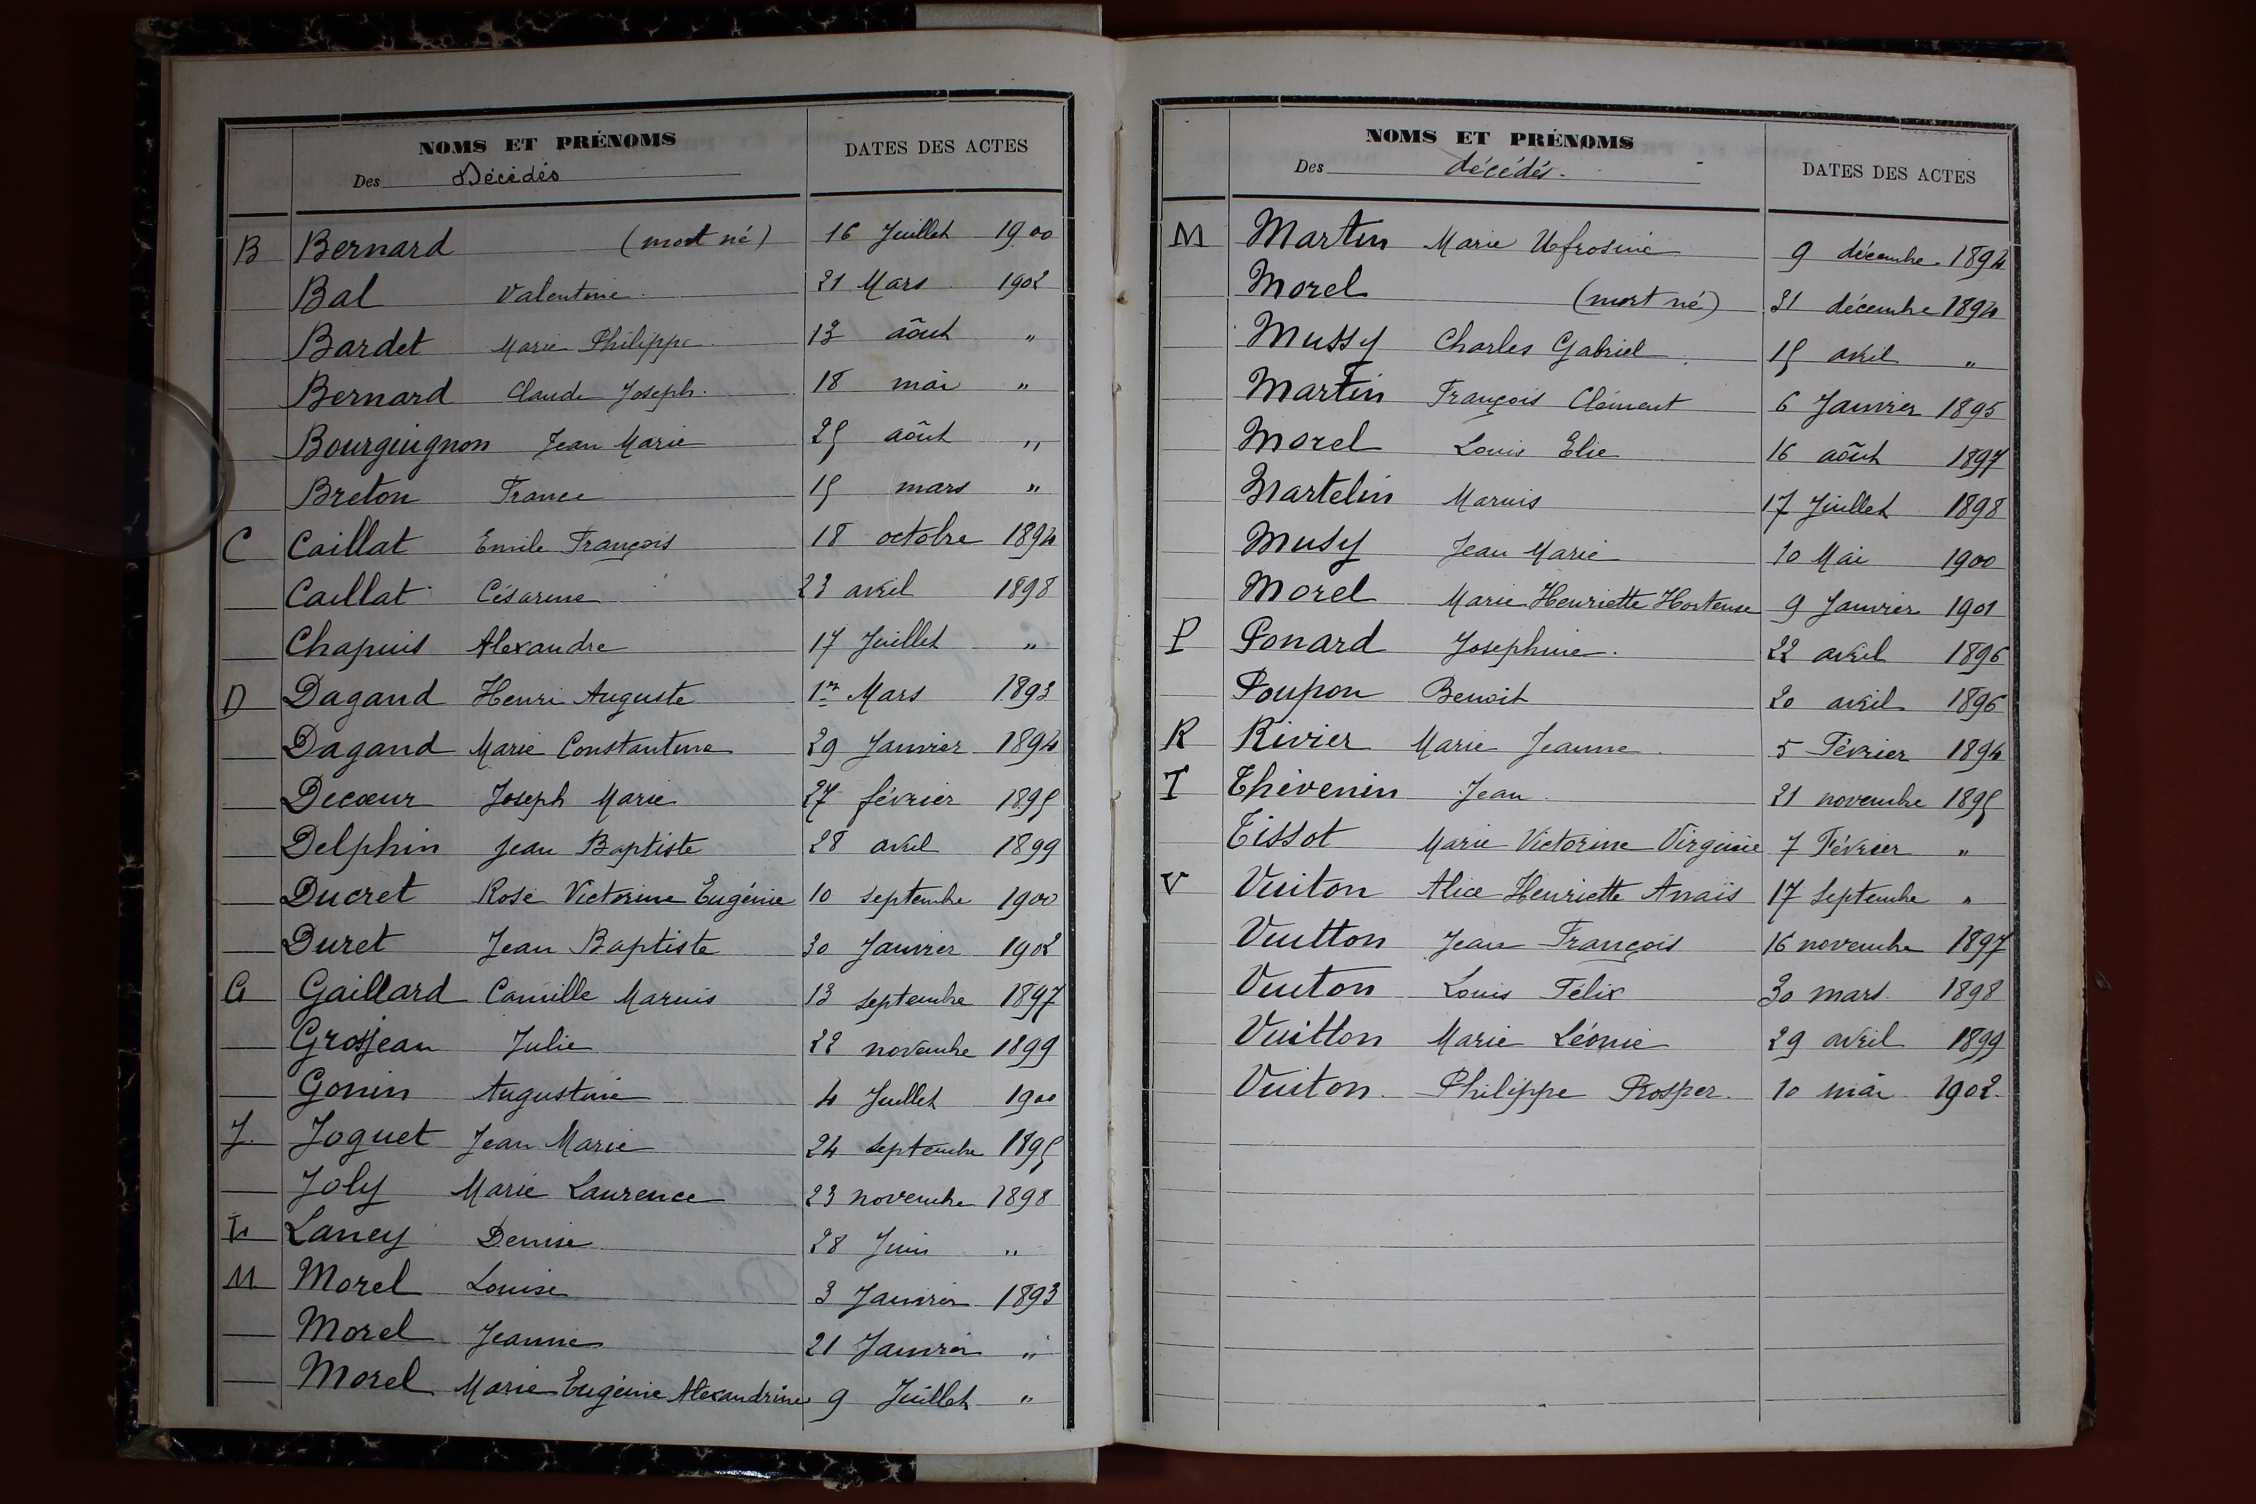 NOMS ET PRÉNOMS DATES DES ACTES
Des Décédés
B Bernard (mort né) 16 Juillet 1900
Bal Valentine 21 Mars 1902
Bardet Marie Philippe 13 aôut "
Bernard Claude Joseph. 18 mai "
Bourguignon Jean Marie 25 aôut "
Breton France 15 mars "
C Caillat Emile François 18 octobre 1894
Caillat Césarine 23 avril 1898
Chapuis Alexandre 17 Juillet "
D Dagand Henri Auguste 1er Mars 1893
Dagand Marie Constantine 29 Janvier 1894
Decœur Joseph Marie 27 février 1895
Delphin Jean Baptiste 28 avril 1899
Ducret Rose Victorine Eugénie 10 septembre 1900
Duret Jean Baptiste 30 Janvier 1902
G Gaillard Camille Marius 13 septembre 1897
Grosjean Julie 22 novembre 1899
Gonin Augustine 4 Juillet 1900
J. Joguet Jean Marie 24 septembre 1895
Joly Marie Laurence 23 novembre 1898
L Laney Denise 28 Juin "
M Morel Louise 3 Janvier 1893
Morel Jeanne 21 Janvier "
Morel Marie Eugénie Alexandrine 9 Juillet "
NOMS ET PRÉNOMS DATES DES ACTES
Des décédés.
M Martin Marie Ufrosine 9 décembre 1894
Morel (mort né) 31 décembre 1894
Mussy Charles Gabriel 15 avril "
Martin François Clément 6 Janvier 1895
Morel Louis Elie 16 aôut 1897
Martelin Marius 17 Juillet 1898
Musy Jean Marie 10 Mai 1900
Morel Marie Henriette Hortense 9 Janvier 1901
P Ponard Josephine. 22 avril 1896
Poupon Benoit 20 avril 1896
R Rivier Marie Jeanne 5 Février 1894
T Thévenin Jean 21 novembre 1895
Tissot Marie Victorine Virginie 7 Février "
V Vuiton Alice Henriette Anaïs 17 Septembre "
Vuitton Jean François 16 novembre 1897
Vuiton Louis Félix 30 mars 1898
Vuitton Marie Léonie 29 avril 1899
Vuiton Philippe Prosper. 10 mai 1902.